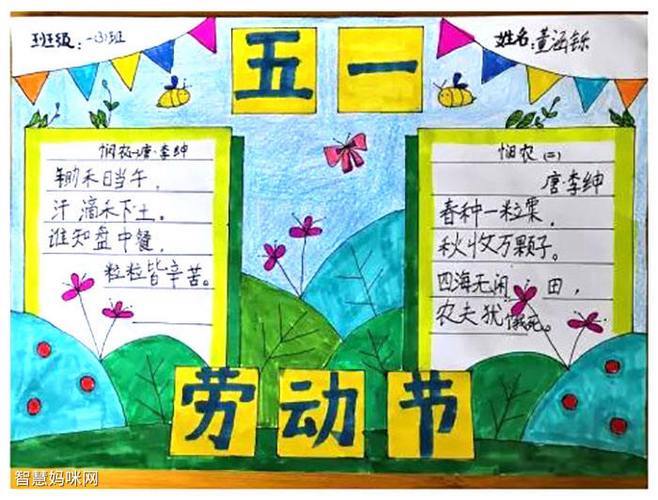 班级:一(3)班
姓名:董涵铄
五一
悯农一唐·李绅
锄禾日当午,
汗滴禾下土。
谁知盘中餐,
粒粒皆辛苦。
悯农(二)
唐·李绅
春种一粒粟,
秋收万颗子。
四海无闲田,
农夫犹饿死。
劳动节
智慧妈咪网